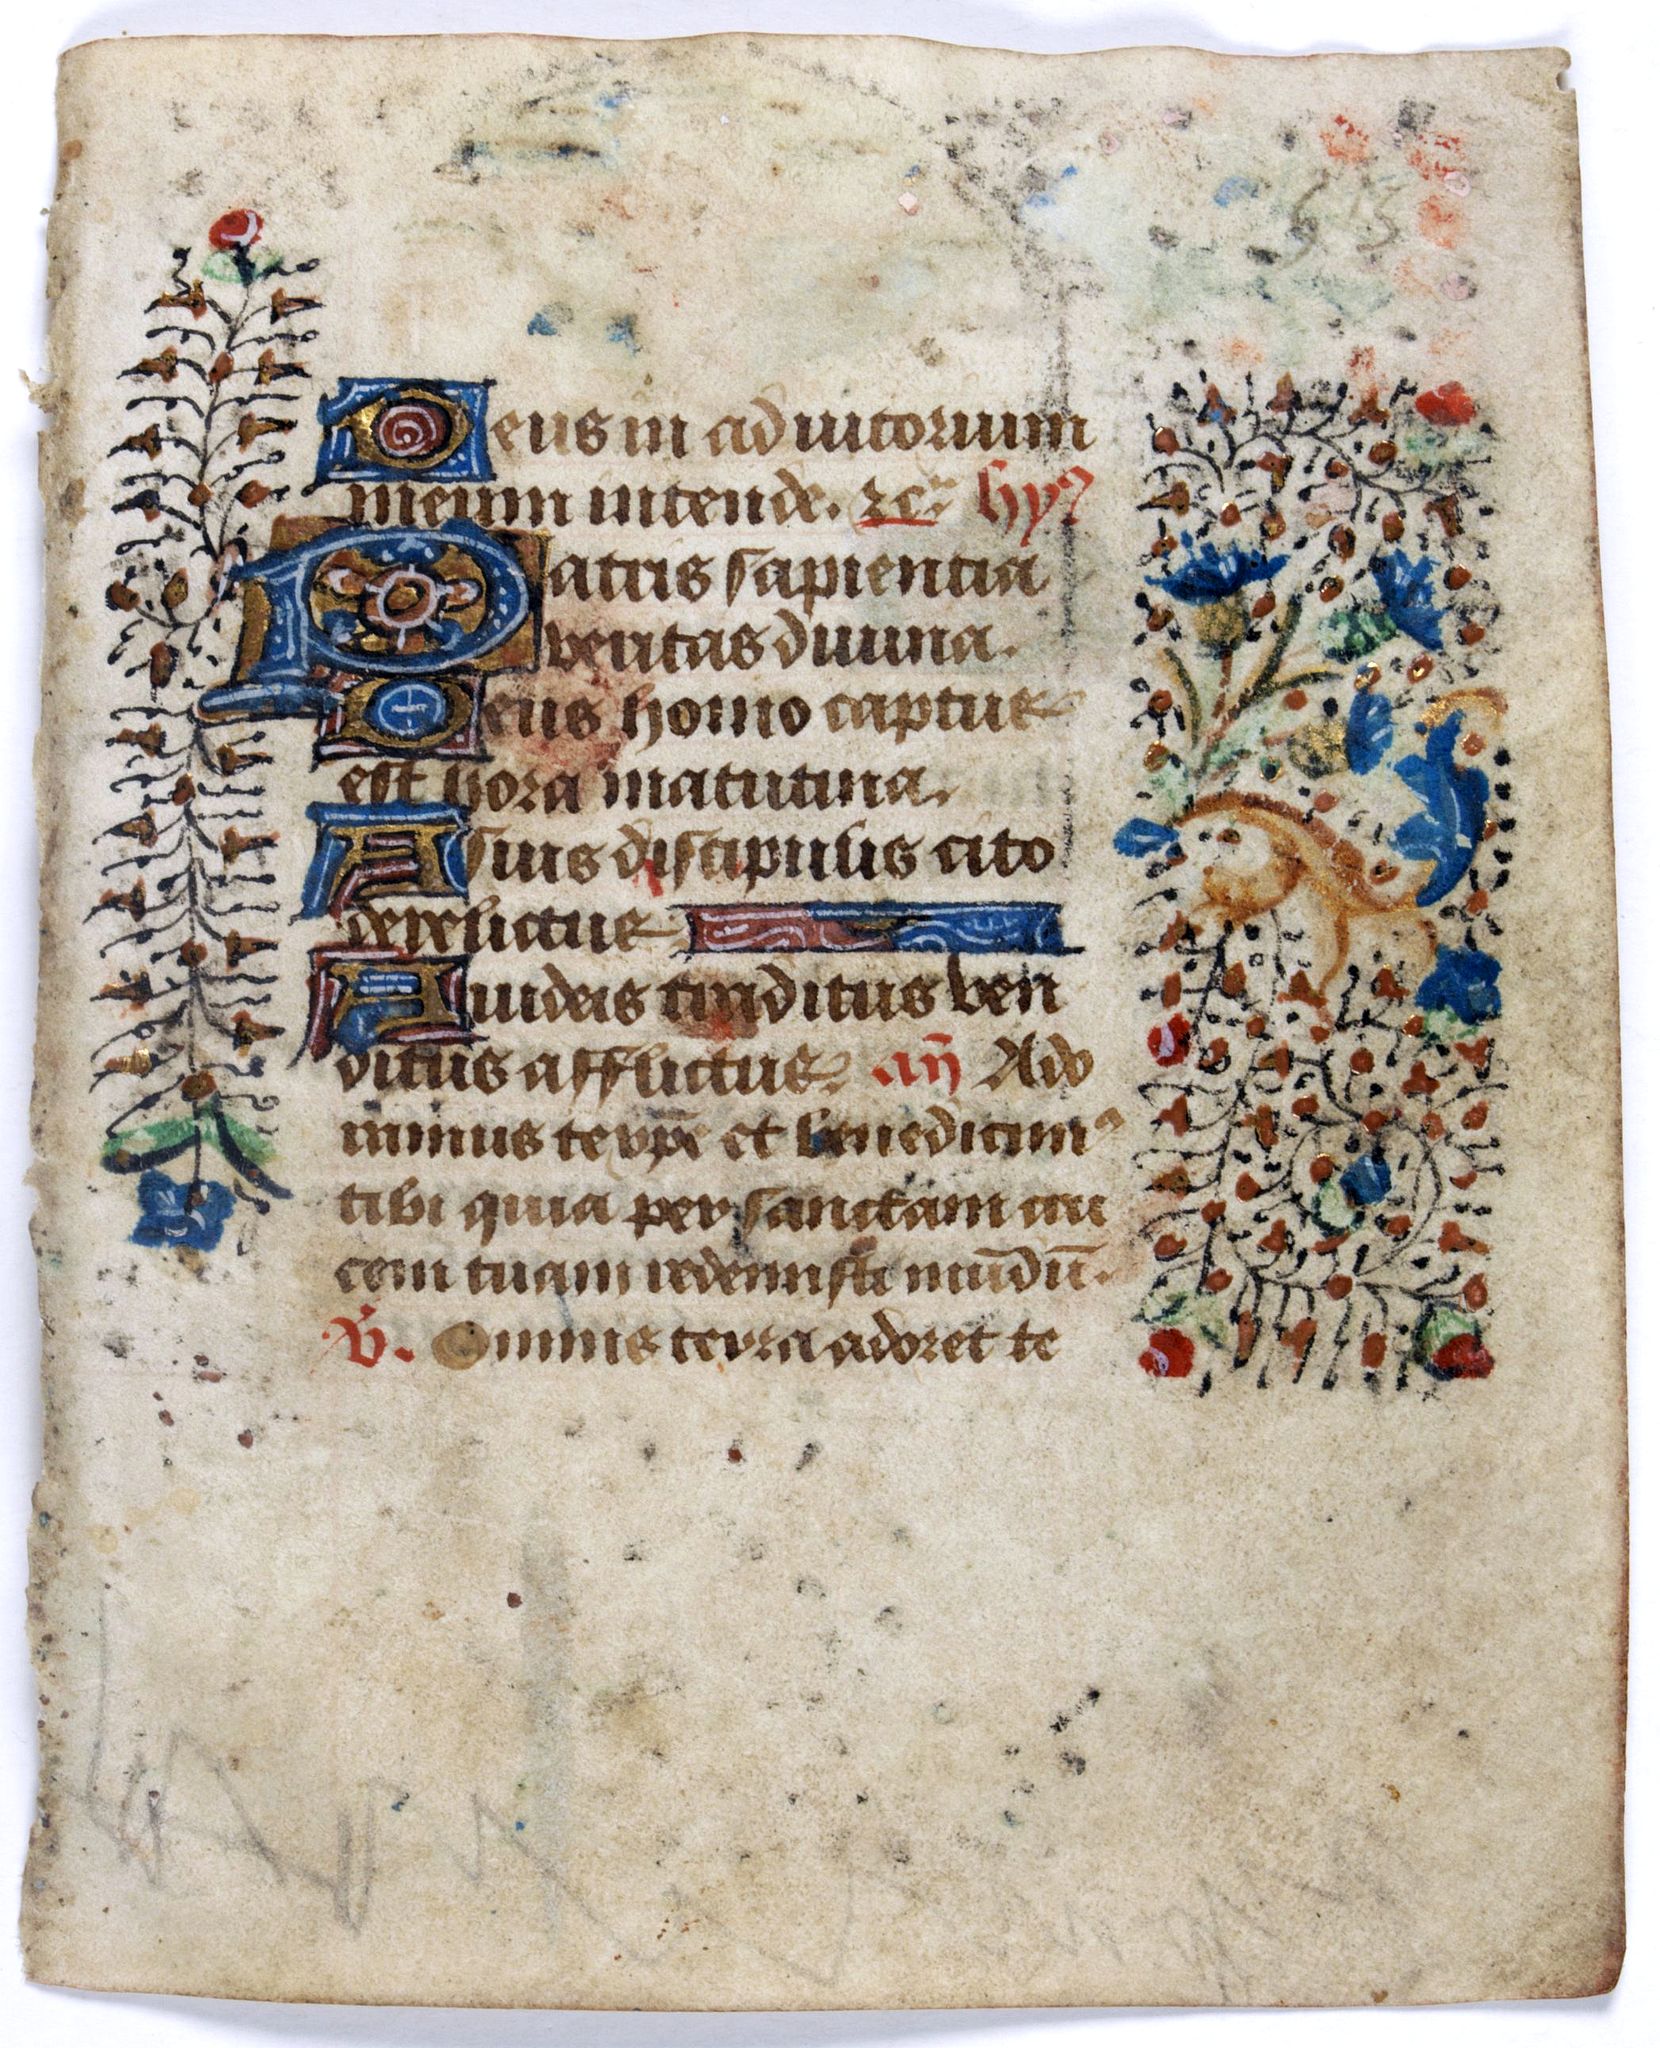 Deus in adiutorium
meum intende. zc̃. hy⁹
Patris sapientia
veritas diuina.
Deus homo captus
est hora matutina.
A suis discipulis cito
derelictus
A iudeis traditus ven
ditus afflictus. añ Ado
ramus te xp̃e et benedicim⁹
tibi quia per sanctam cru
cem tuam redemisti mũdũ.
V̕. Omnis terra adoret te